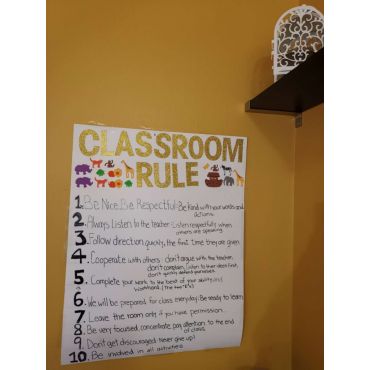 CLASSROOM
RULE
1. Be Nice. Be Respectful. Be Kind with your words and
actions.
2. Always Listen to the teacher. Listen respectfully when
others are speaking.
3. Follow direction quickly, the first time they are given.
4. Cooperate with others don't argue with the teacher,
don't complain, Listen to their ideas first,
don't quickly defend yourselves.
5. Complete your work to the best of your ability and
6. We will be prepared for class everyday. Be ready to learn
7. Leave the room only if you have permission...
8. Be very focused, concentrate, pay attention to the end
of class.
9. Don't get discouraged. Never give up!
10. Be involved in all activities